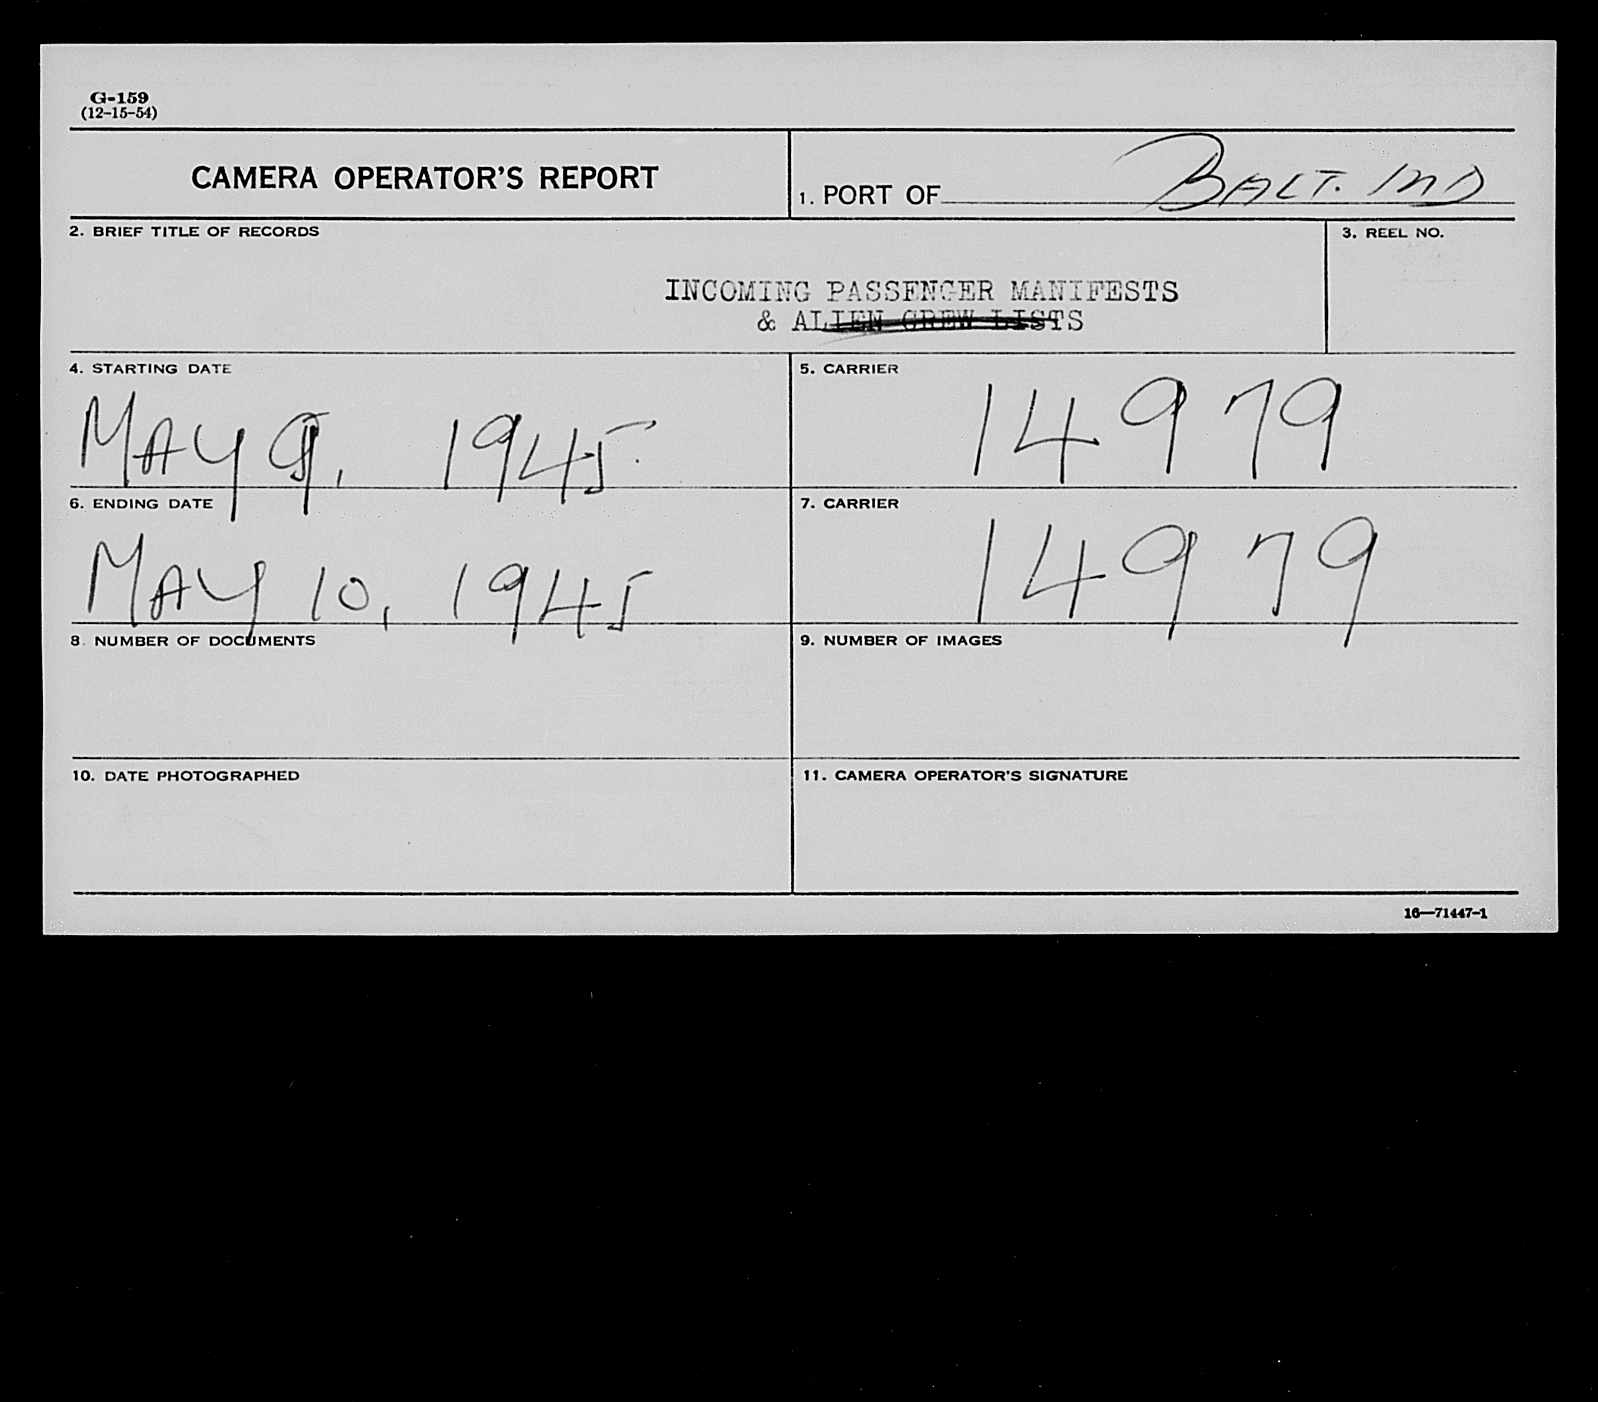 G-159
(12-15-54)
CAMERA OPERATOR'S REPORT
1. PORT OF BALT. MD
2. BRIEF TITLE OF RECORDS
3. REEL NO.
INCOMING PASSENGER MANIFESTS
& ALIEN CREW LISTS
4. STARTING DATE
MAY 9, 1945
5. CARRIER
14979
6. ENDING DATE
MAY 10, 1945
7. CARRIER
14979
8. NUMBER OF DOCUMENTS
9. NUMBER OF IMAGES
10. DATE PHOTOGRAPHED
11. CAMERA OPERATOR'S SIGNATURE
16—71447-1